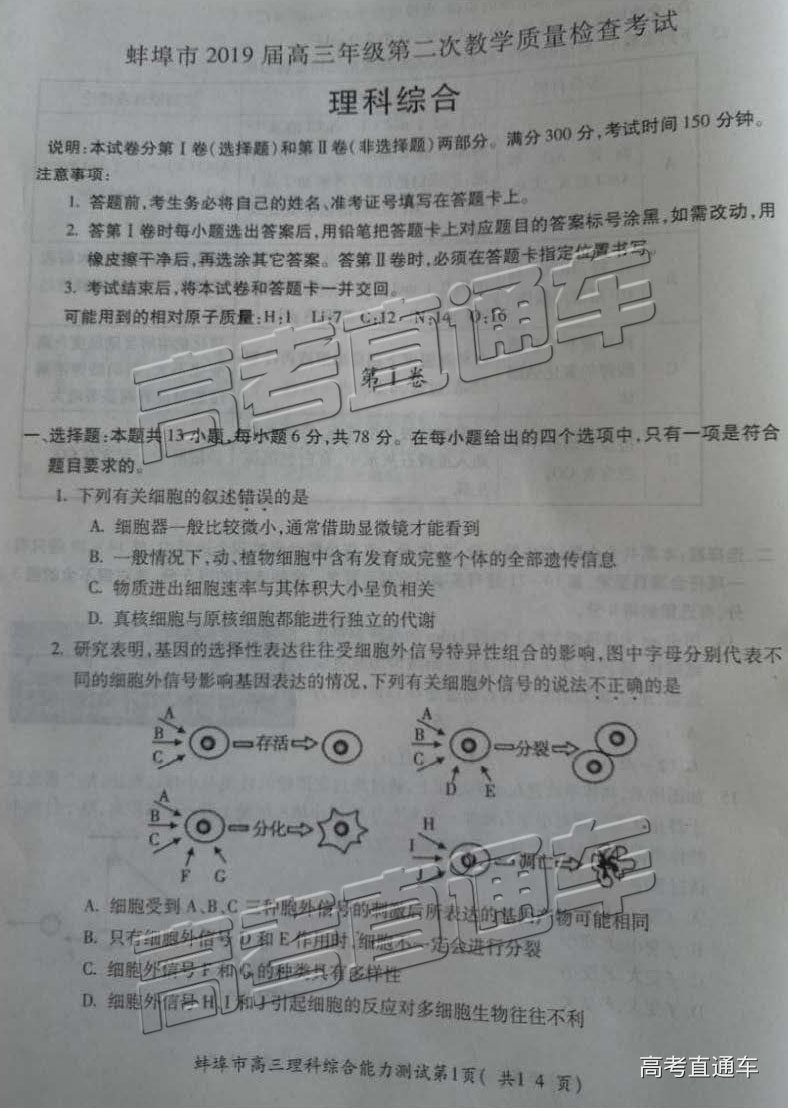 蚌埠市2019届高三年级第二次教学质量检查考试
理科综合
说明:本试卷分第Ⅰ卷(选择题)和第Ⅱ卷(非选择题)两部分。满分300分,考试时间150分钟。
注意事项:
1. 答题前,考生务必将自己的姓名、准考证号填写在答题卡上。
2. 答第Ⅰ卷时每小题选出答案后,用铅笔把答题卡上对应题目的答案标号涂黑,如需改动,用
橡皮擦干净后,再选涂其它答案。答第Ⅱ卷时,必须在答题卡指定位置书写。
3. 考试结束后,将本试卷和答题卡一并交回。
可能用到的相对原子质量:H:1 Li:7 C:12 N:14 O:16
高考直通车
第Ⅰ卷
一、选择题:本题共13小题,每小题6分,共78分。在每小题给出的四个选项中,只有一项是符合
题目要求的。
1. 下列有关细胞的叙述错误的是
A. 细胞器一般比较微小,通常借助显微镜才能看到
B. 一般情况下,动、植物细胞中含有发育成完整个体的全部遗传信息
C. 物质进出细胞速率与其体积大小呈负相关
D. 真核细胞与原核细胞都能进行独立的代谢
2. 研究表明,基因的选择性表达往往受细胞外信号特异性组合的影响,图中字母分别代表不
同的细胞外信号影响基因表达的情况,下列有关细胞外信号的说法不正确的是
A B C 存活
A B C D E 分裂
A B C F G 分化
H I J 凋亡
高考直通车
A. 细胞受到A、B、C三种胞外信号的刺激后所表达的基因产物可能相同
B. 只有细胞外信号D和E作用时,细胞不一定会进行分裂
C. 细胞外信号F和G的种类具有多样性
D. 细胞外信号H、I和J引起细胞的反应对多细胞生物往往不利
蚌埠市高三理科综合能力测试第1页(共14页)
高考直通车